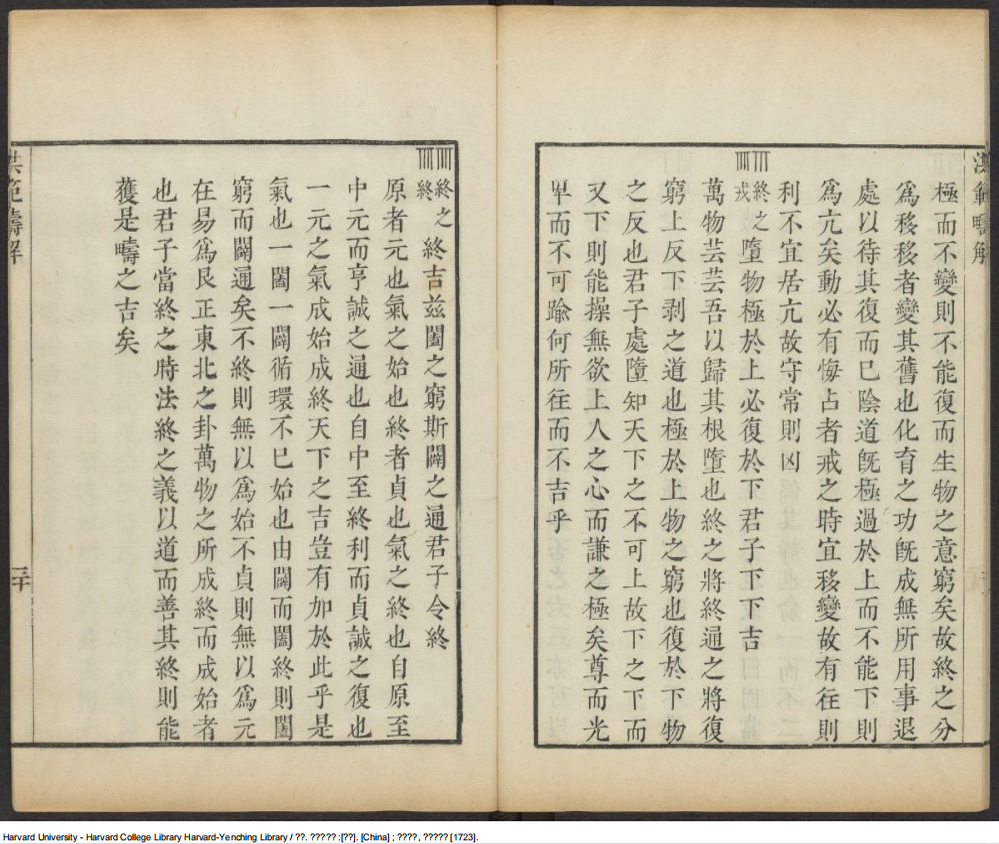 洪範疇解
極而不變則不能復而生物之意窮矣故終之分
為移移者變其舊也化育之功既成無所用事退
處以待其復而已陰道既極過於上而不能下則
為亢矣動必有悔占者戒之時宜移變故有往則
利不宜居亢故守常則凶
終之戎墮物極於上必復於下君子下下吉
萬物芸芸吾以歸其根墮也終之將終通之將復
窮上反下剥之道也極於上物之窮也復於下物
之反也君子處墮知天下之不可上故下之下而
又下則能操無欲上人之心而謙之極矣尊而光
𤰞而不可踰何所往而不吉乎
終之終終吉兹闔之窮斯闢之通君子令終
原者元也氣之始也終者貞也氣之終也自原至
中元而亨誠之通也自中至終利而貞誠之復也
一元之氣成始成終天下之吉豈有加於此乎是
氣也一闔一闢循環不已始也由闢而闔終則闔
窮而闢通矣不終則無以為始不貞則無以為元
在易為艮正東北之卦萬物之所成終而成始者
也君子當終之時法終之義以道而善其終則能
獲是疇之吉矣
洪範疇解
三十
Harvard University - Harvard College Library Harvard-Yenching Library / ??. ????? :[??]. [China] ; ????, ????? [1723].